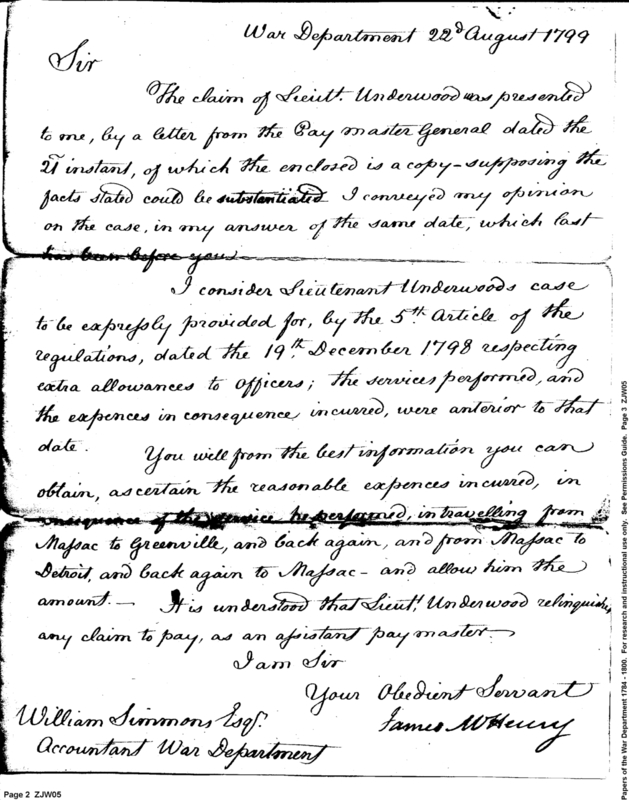 War Department 22d August 1799
Sir
The claim of Lieutt. Underwood was presented
to me, by a letter from the Pay master General dated the
21st instant, of which the enclosed is a copy - supposing the
facts stated could be substantiated I conveyed my opinion
on the case, in my answer of the same date, which last
has been before you
I consider Lieutenant Underwoods case
to be expressly provided for, by the 5th Article of the
regulations, dated the 19th December 1798 respecting
extra allowances to Officers; the services performed, and
the expences in consequence incurred, were anterior to that
date.
You will from the best information you can
obtain, ascertain the reasonable expences incurred, in
consequence of the service he performed, in travelling from
Massac to Greenville, and back again, and from Massac to
Detroit, and back again to Massac - and allow him the
amount. - It is understood that Lieutt. Underwood relinquishes
any claim to pay, as an assistant paymaster -
I am Sir
Your Obedient Servant
James McHenry
William Simmons Esqr.
Accountant War Department
Page 2 ZJW05
Papers of the War Department 1784 - 1800. For research and instructional use only. See Permissions Guide. Page 3 ZJW05